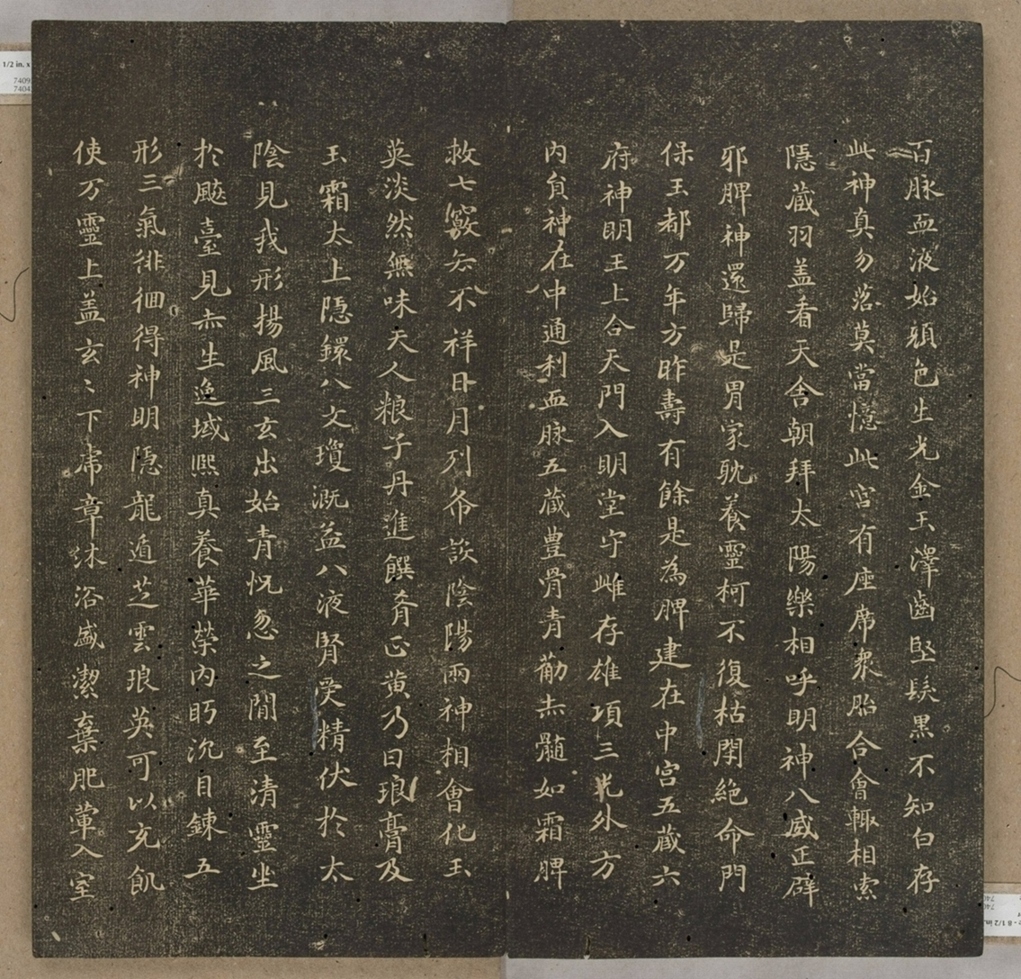 百脉血液始顔色生光金玉澤齒堅髮黒不知白存
此神真勿落莫當憶此宫有座席衆胎合會輙相索
隱蔵羽盖看天舎朝拜太陽樂相呼明神八威正辟
邪脾神還歸是胃家耽養靈柯不復枯閇絶命門
保玉都万年方昨壽有餘是為脾建在中宫五蔵六
府神明王上合天門入明堂守雌存雄項三光外方
内貟神在中通利血脉五蔵豊骨青葥赤髓如霜脾
救七竅去不祥日月列布設陰陽兩神相會化玉
英淡然無味天人粮子丹進饌肴正黄乃曰琅膏及
玉霜太上隱鐶八文瓊溉益八液腎受精伏於太
陰見我形揚風三玄出始青怳忽之閒至清靈坐
於飈臺見赤生逸域熙真養華榮内眄沉目錬五
形三氣徘徊得神明隱龍遁芝雲琅英可以充飢
使万靈上盖玄〻下席章沐浴盛潔棄肥葷入室
1/2 in. x